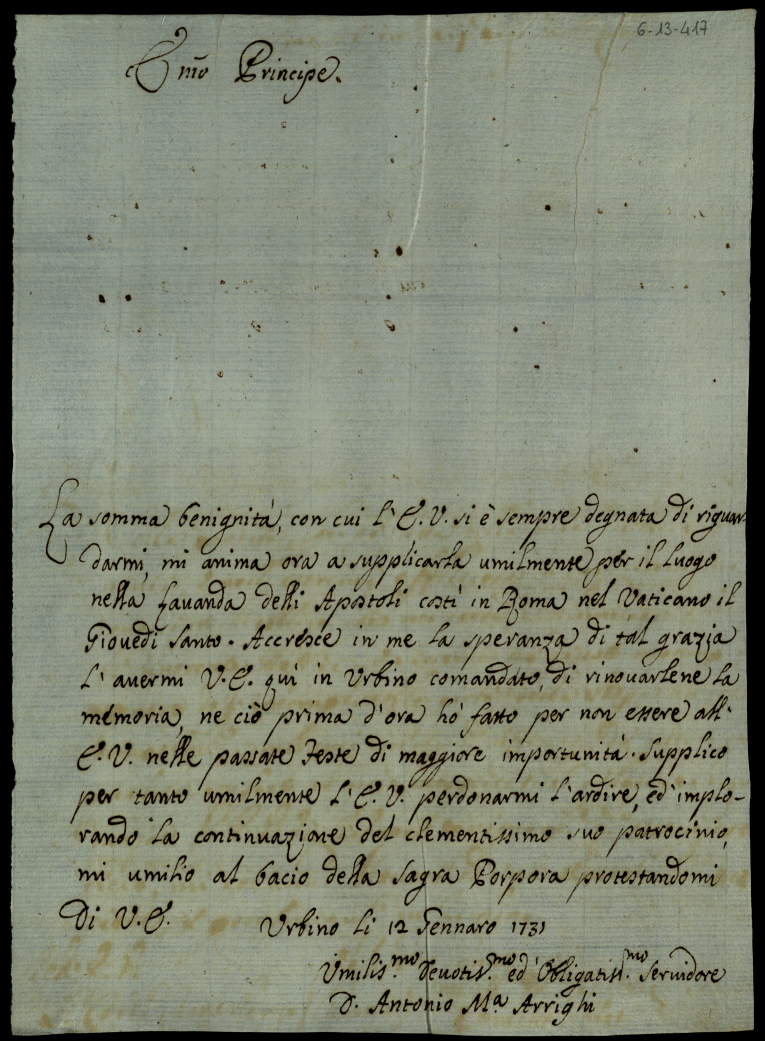 6-13-417
E.mo Principe.
La somma benignità, con cui l'E.V. si è sempre degnata di riguar-
darmi, mi anima ora a supplicarla umilmente per il luogo
nella Lavanda delli Apostoli costì in Roma nel Vaticano il
Giovedì Santo. Accresce in me la speranza di tal grazia
l'avermi V.E. quì in Urbino comandato, di rinovarlene la
memoria, ne ciò prima d'ora hò fatto per non essere all'
E.V. nelle passate Feste di maggiore importunità. Supplico
per tanto umilmente l'E.V. perdonarmi l'ardire, ed' implo-
rando la continuazione del clementissimo suo patrocinio,
mi umilio al bacio della Sagra Porpora protestandomi
Di V.E. Urbino li 12 Gennaro 1731
Umilis.mo Devotis.mo ed' Obligatis.mo Servidore
D. Antonio M.a Arrighi